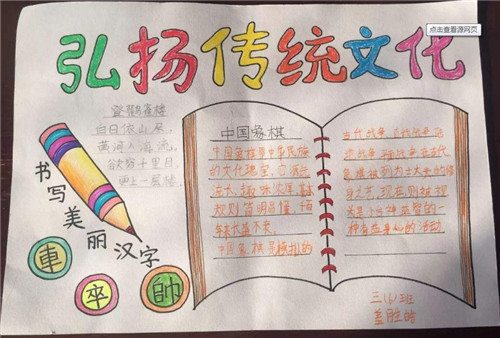 点击查看源网页
弘扬传统文化
登鹳雀楼
白日依山尽,
黄河入海流,
欲穷千里目,
更上一层楼。
书写美丽汉字
車
卒
帥
中国象棋
中国象棋是中华民族
的文化瑰宝,它源远
流长,趣味浓厚,基本
规则简明易懂,
年长盛不衰。
中国象棋是模拟的
古代战争、
战争,
身之艺,现在则被视
为是个益神益智的一
种有益身心的活动
三(6)班